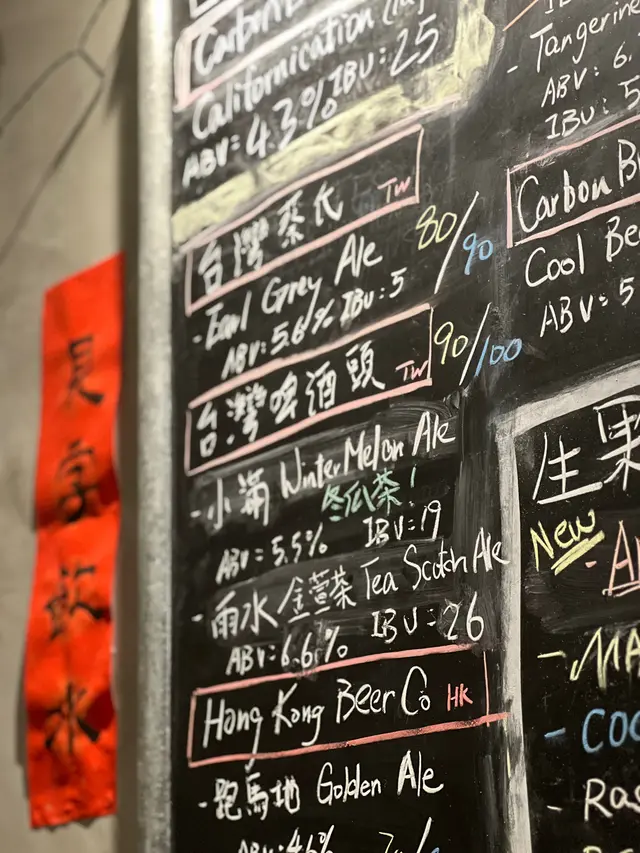 Carbon
Californication
ABV: 4.3% IBU: 25
台灣茶氏 TW
80/90
-Earl Grey Ale
ABV: 5.6% IBU: 5
台灣啤酒頭 TW
90/100
-小滿 Winter Melon Ale
冬瓜茶!
ABV: 5.5% IBU: 19
-雨水 金萱茶 Tea Scotch Ale
ABV: 6.6% IBU: 26
Hong Kong Beer Co HK
-跑馬地 Golden Ale
ABV: 4.6%
-Tangerine
ABV: 6.
IBU: 5
Carbon B
Cool Be
ABV: 5
生果
New
-
- MA
- COO
- Ras